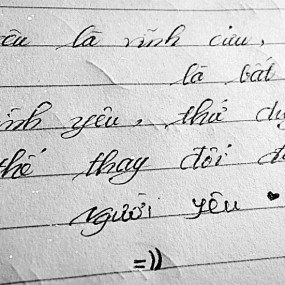 là vĩnh cửu,
là bất
yêu, thứ
thế thay đổi
người yêu
=))